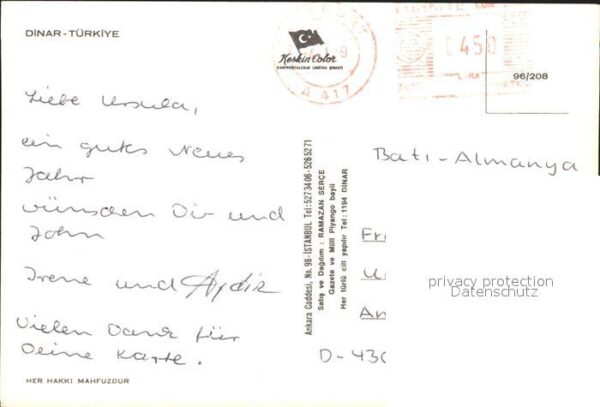 DİNAR - TÜRKİYE
Keskin Color
KARTPOSTALCILIK LİMİTED ŞİRKETİ
A 417
0450
96/208
Liebe Ursula,
ein gutes Neues
Jahr
wünschen Dir und
John
Irene und Aydin
Vielen Dank für
Deine Karte.
HER HAKKI MAHFUZDUR
Ankara Caddesi, No. 98 - İSTANBUL Tel: 5273406-5265271
Satış ve Dağıtım : RAMAZAN SERÇE
Gazete ve Milli Piyango bayii
Her türlü cilt yapılır Tel: 1194 DİNAR
Batı-Almanya
Fr
U
An
D-430
privacy protection
Datenschutz